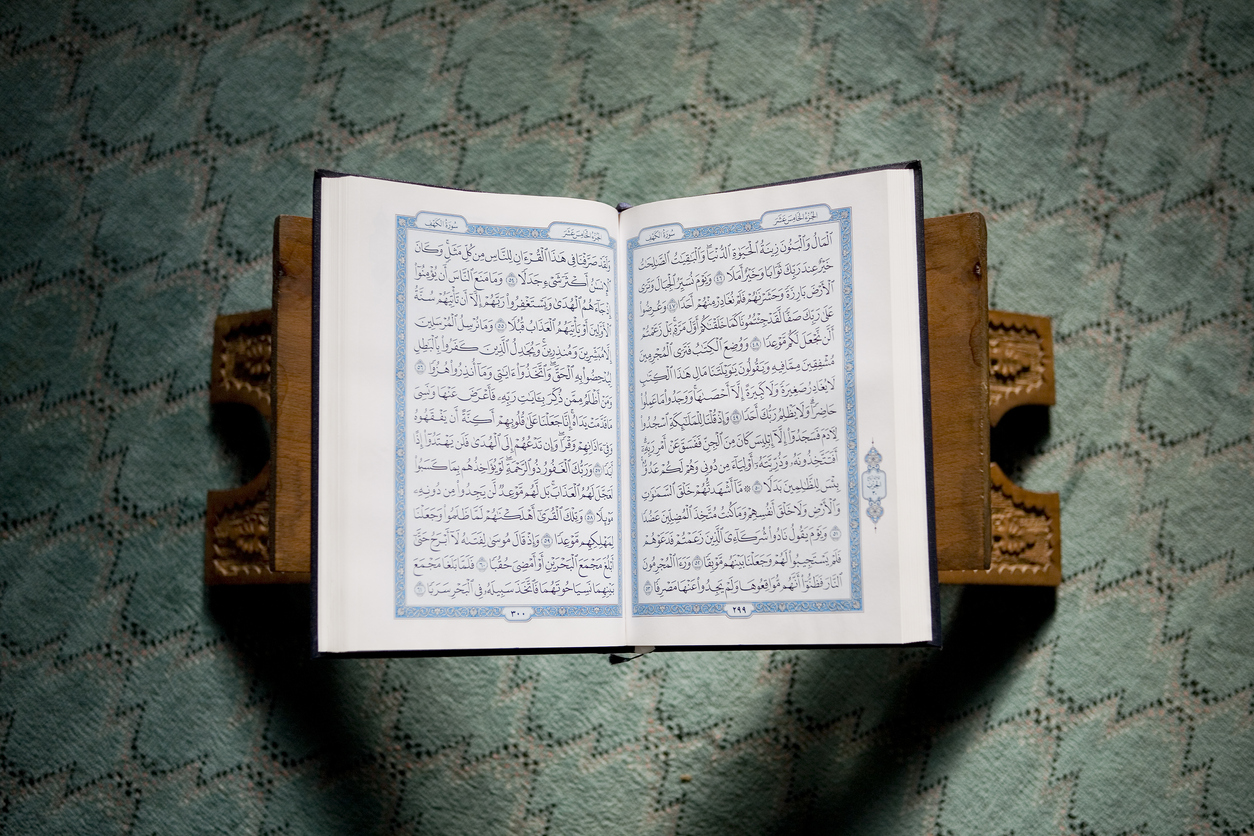 الجُزْءُ الخَامِسَ عَشَرَ
سُورَةُ الكَهْفِ
ٱلْمَالُ وَٱلْبَنُونَ زِينَةُ ٱلْحَيَوٰةِ ٱلدُّنْيَا ۖ وَٱلْبَٰقِيَٰتُ ٱلصَّٰلِحَٰتُ
خَيْرٌ عِندَ رَبِّكَ ثَوَابًا وَخَيْرٌ أَمَلًا ٤٦ وَيَوْمَ نُسَيِّرُ ٱلْجِبَالَ وَتَرَى
ٱلْأَرْضَ بَارِزَةً وَحَشَرْنَٰهُمْ فَلَمْ نُغَادِرْ مِنْهُمْ أَحَدًا ٤٧ وَعُرِضُوا۟
عَلَىٰ رَبِّكَ صَفًّا لَّقَدْ جِئْتُمُونَا كَمَا خَلَقْنَٰكُمْ أَوَّلَ مَرَّةٍۭ ۚ بَلْ زَعَمْتُمْ
أَلَّن نَّجْعَلَ لَكُم مَّوْعِدًا ٤٨ وَوُضِعَ ٱلْكِتَٰبُ فَتَرَى ٱلْمُجْرِمِينَ
مُشْفِقِينَ مِمَّا فِيهِ وَيَقُولُونَ يَٰوَيْلَتَنَا مَالِ هَٰذَا ٱلْكِتَٰبِ
لَا يُغَادِرُ صَغِيرَةً وَلَا كَبِيرَةً إِلَّآ أَحْصَىٰهَا ۚ وَوَجَدُوا۟ مَا عَمِلُوا۟
حَاضِرًا ۗ وَلَا يَظْلِمُ رَبُّكَ أَحَدًا ٤٩ وَإِذْ قُلْنَا لِلْمَلَٰٓئِكَةِ ٱسْجُدُوا۟
لِـَٔادَمَ فَسَجَدُوٓا۟ إِلَّآ إِبْلِيسَ كَانَ مِنَ ٱلْجِنِّ فَفَسَقَ عَنْ أَمْرِ رَبِّهِۦٓ ۗ
أَفَتَتَّخِذُونَهُۥ وَذُرِّيَّتَهُۥٓ أَوْلِيَآءَ مِن دُونِى وَهُمْ لَكُمْ عَدُوٌّۢ ۚ
بِئْسَ لِلظَّٰلِمِينَ بَدَلًا ٥٠ ۞ مَّآ أَشْهَدتُّهُمْ خَلْقَ ٱلسَّمَٰوَٰتِ
وَٱلْأَرْضِ وَلَا خَلْقَ أَنفُسِهِمْ وَمَا كُنتُ مُتَّخِذَ ٱلْمُضِلِّينَ عَضُدًا
٥١ وَيَوْمَ يَقُولُ نَادُوا۟ شُرَكَآءِىَ ٱلَّذِينَ زَعَمْتُمْ فَدَعَوْهُمْ
فَلَمْ يَسْتَجِيبُوا۟ لَهُمْ وَجَعَلْنَا بَيْنَهُم مَّوْبِقًا ٥٢ وَرَءَا ٱلْمُجْرِمُونَ
ٱلنَّارَ فَظَنُّوٓا۟ أَنَّهُم مُّوَاقِعُوهَا وَلَمْ يَجِدُوا۟ عَنْهَا مَصْرِفًا ٥٣
٢٩٩
الجُزْءُ الخَامِسَ عَشَرَ
سُورَةُ الكَهْفِ
وَلَقَدْ صَرَّفْنَا فِى هَٰذَا ٱلْقُرْءَانِ لِلنَّاسِ مِن كُلِّ مَثَلٍ ۚ وَكَانَ
ٱلْإِنسَٰنُ أَكْثَرَ شَىْءٍ جَدَلًا ٥٤ وَمَا مَنَعَ ٱلنَّاسَ أَن يُؤْمِنُوٓا۟
إِذْ جَآءَهُمُ ٱلْهُدَىٰ وَيَسْتَغْفِرُوا۟ رَبَّهُمْ إِلَّآ أَن تَأْتِيَهُمْ سُنَّةُ
ٱلْأَوَّلِينَ أَوْ يَأْتِيَهُمُ ٱلْعَذَابُ قُبُلًا ٥٥ وَمَا نُرْسِلُ ٱلْمُرْسَلِينَ
إِلَّا مُبَشِّرِينَ وَمُنذِرِينَ ۚ وَيُجَٰدِلُ ٱلَّذِينَ كَفَرُوا۟ بِٱلْبَٰطِلِ
لِيُدْحِضُوا۟ بِهِ ٱلْحَقَّ ۖ وَٱتَّخَذُوٓا۟ ءَايَٰتِى وَمَآ أُنذِرُوا۟ هُزُوًا ٥٦
وَمَنْ أَظْلَمُ مِمَّن ذُكِّرَ بِـَٔايَٰتِ رَبِّهِۦ فَأَعْرَضَ عَنْهَا وَنَسِىَ
مَا قَدَّمَتْ يَدَاهُ ۚ إِنَّا جَعَلْنَا عَلَىٰ قُلُوبِهِمْ أَكِنَّةً أَن يَفْقَهُوهُ
وَفِىٓ ءَاذَانِهِمْ وَقْرًا ۖ وَإِن تَدْعُهُمْ إِلَى ٱلْهُدَىٰ فَلَن يَهْتَدُوٓا۟ إِذًا
أَبَدًا ٥٧ وَرَبُّكَ ٱلْغَفُورُ ذُو ٱلرَّحْمَةِ ۖ لَوْ يُؤَاخِذُهُم بِمَا كَسَبُوا۟
لَعَجَّلَ لَهُمُ ٱلْعَذَابَ ۚ بَل لَّهُم مَّوْعِدٌ لَّن يَجِدُوا۟ مِن دُونِهِۦ
مَوْئِلًا ٥٨ وَتِلْكَ ٱلْقُرَىٰٓ أَهْلَكْنَٰهُمْ لَمَّا ظَلَمُوا۟ وَجَعَلْنَا
لِمَهْلِكِهِم مَّوْعِدًا ٥٩ وَإِذْ قَالَ مُوسَىٰ لِفَتَىٰهُ لَآ أَبْرَحُ حَتَّىٰٓ
أَبْلُغَ مَجْمَعَ ٱلْبَحْرَيْنِ أَوْ أَمْضِىَ حُقُبًا ٦٠ فَلَمَّا بَلَغَا مَجْمَعَ
بَيْنِهِمَا نَسِيَا حُوتَهُمَا فَٱتَّخَذَ سَبِيلَهُۥ فِى ٱلْبَحْرِ سَرَبًا ٦١
٣٠٠